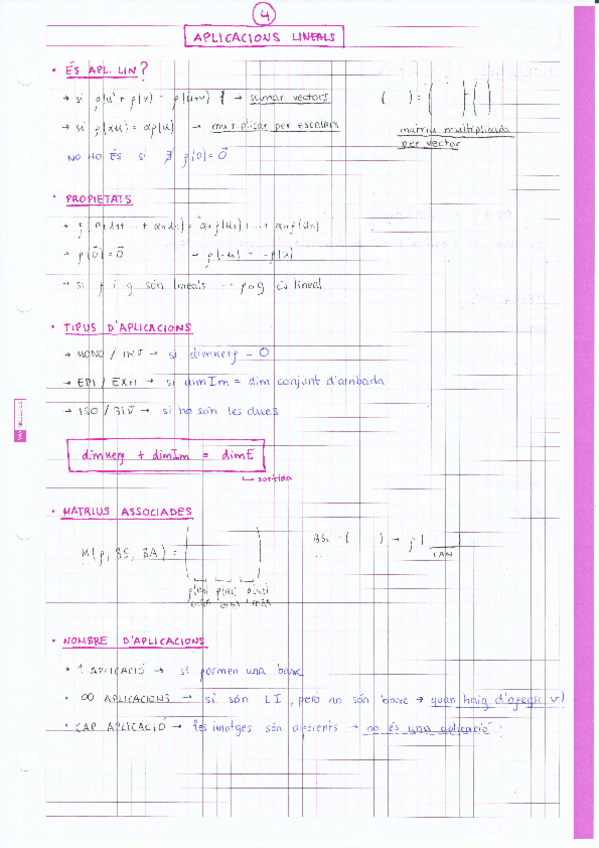 4
APLICACIONS LINEALS
• ÉS APL. LIN?
→ si ρ(u) + ρ(v) = ρ(u+v) → sumar vectors
( ) = ( ) ( )
→ si ρ(αu) = αρ(u) → multiplicar per escalars
matriu multiplicada
per vector
NO HO ÉS si ∄ ρ(0) = 0⃗
• PROPIETATS
→ ρ(0⃗) = 0⃗ → ρ(-u) = -ρ(u)
→ si ρ i g són lineals → ρog és lineal
• TIPUS D'APLICACIONS
→ MONO / INJ → si dimKerρ = 0
→ EPI / EXH → si dimIm = dim conjunt d'arribada
→ ISO / BIJ → si ho són les dues
dimKerρ + dimIm = dimE
↳ sortida
• MATRIUS ASSOCIADES
M(ρ, BS, BA) = ( )
BS = ( ) → ρ(
CAN
ρ(u1) ρ(u2) ρ(u3)
• NOMBRE D'APLICACIONS
• 1 APLICACIÓ → si formen una base
• ∞ APLICACIONS → si són LI, però no són base → quan haig d'afegir v⃗!
• CAP APLICACIÓ → les imatges són diferents → no és una aplicació!